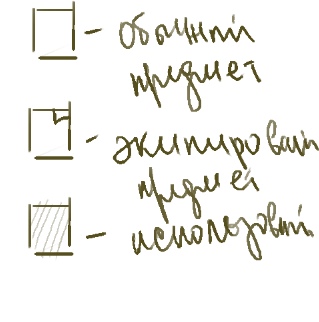 - обычный
предмет
- экипирован
предмет
- использован